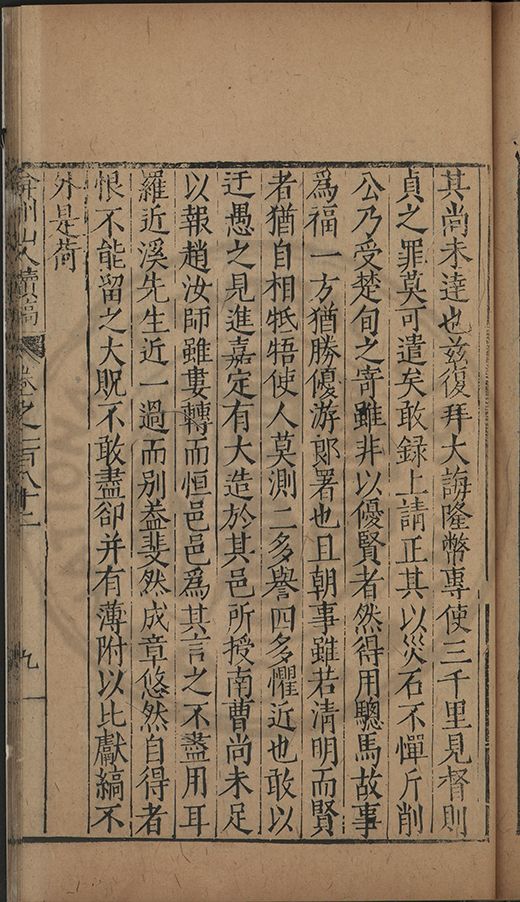 其尚未達也茲復拜大誨隆幣專使三千里見督則
貞之罪莫可遣矣敢録上請正其以災石不憚斤削
公乃受楚旬之寄雖非以優賢者然得用驄馬故事
爲福一方猶勝優游郞署也且朝事雖若清明而賢
者猶自相牴牾使人莫測二多譽四多懼近也敢以
迂愚之見進嘉定有大造於其邑所授南曹尚未足
以報趙汝師雖婁轉而恒邑邑爲其言之不盡用耳
羅近溪先生近一過而別益斐然成章悠然自得者
恨不能留之大貺不敢盡卻并有薄附以比獻縞不
外是荷
弇州山人續稿 卷之一百八十二 九